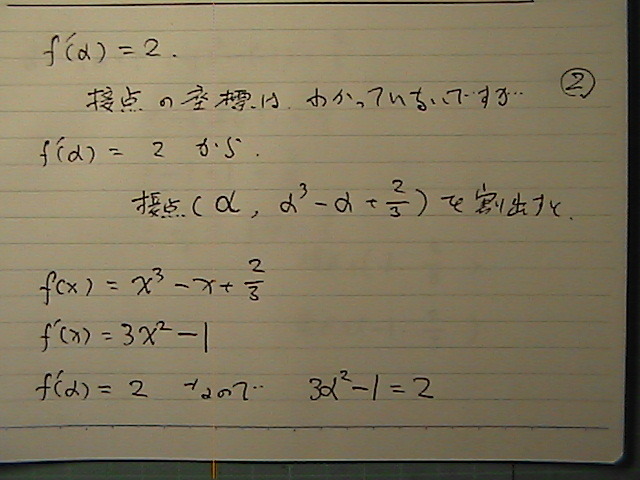 f'(α) = 2.
接点の座標は、わかっていないですが…
②
f'(α) = 2 から、
接点(α, α³ - α + 2/3)を割出すと、
f(x) = x³ - x + 2/3
f'(x) = 3x² - 1
f'(α) = 2 なので… 3α² - 1 = 2